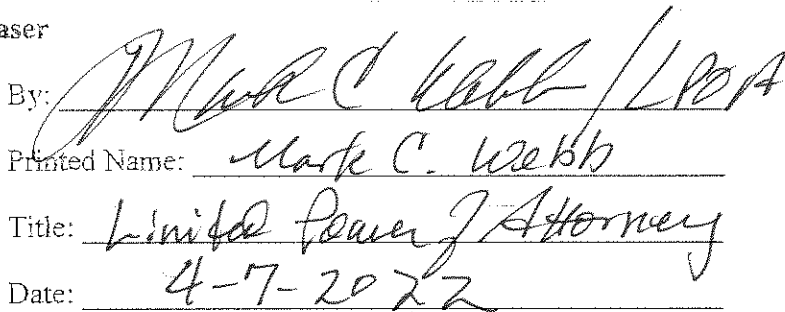 aser
By: Mark C Webb / LPOA
Printed Name: Mark C. Webb
Title: Limited Power of Attorney
Date: 4-7-2022